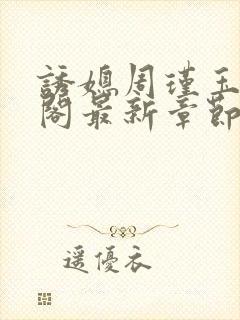 誘媳周瑾玉
閣最新章節
遥優衣